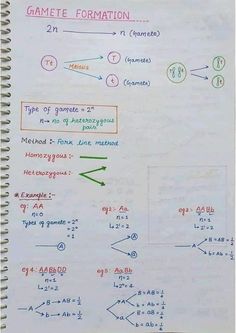 GAMETE FORMATION
2n → n (Gamete)
Tt
Meiosis
T (Gamete)
t (Gamete)
Type of gamete = 2ⁿ
n → no of heterozygous pair
Method :- Fork line method
Homozygous :-
Heterozygous :-
Example :-
eg: AA
n=0
Types of gamete = 2ⁿ
= 2⁰
= 1
A
eg2:- Aa
n=1
↳ 2¹ = 2
A
a
eg3:- AABb
n=1
↳ 2¹ = 2
A
B = AB = 1/2
b = Ab = 1/2
eg4: AABbDD
n=1
↳ 2¹ = 2
A
B
b
eg5: AaBb
n=2
↳ 2² = 4
A
B = AB = 1/4
b = Ab = 1/4
a
B = aB = 1/4
b = ab = 1/4